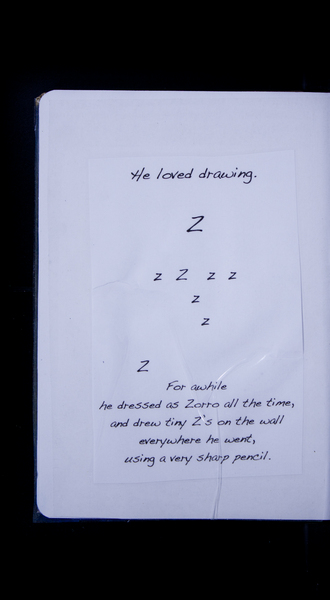 He loved drawing.
Z
z Z z z
z
z
Z
For awhile
he dressed as Zorro all the time,
and drew tiny Z's on the wall
everywhere he went,
using a very sharp pencil.